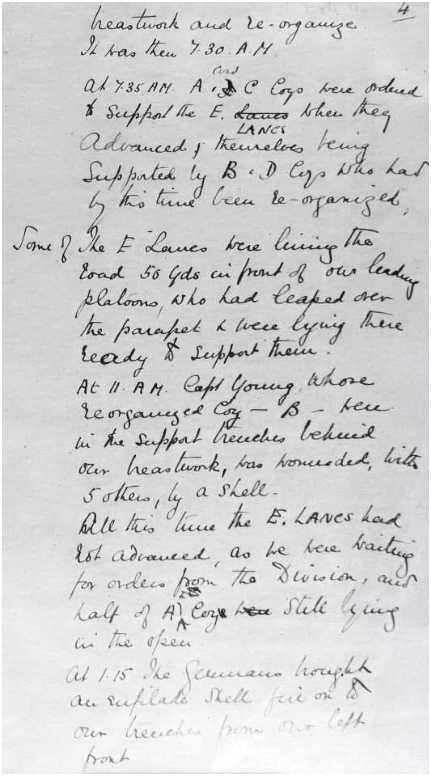 4
breastwork and re-organize
It was then 7.30 A.M.
At 7.35 A.M. A and C Coys were ordered
to Support the E. Lancs when they
LANCS
Advanced, themselves being
Supported by B & D Coys who had
by this time been re-organized.
Some of The E Lancs were lining the
road 50 yds in front of our leading
platoons, who had leaped over
the parapet & were lying there
ready to support them.
At 11. A.M. Capt Young, whose
reorganized Coy - B - were
in the support trenches behind
our breastwork, was wounded, with
5 others, by a shell.
All this time the E. LANCS had
not advanced, as we were waiting
for orders from the Division, and
half of A Coy Still lying
in the open.
At 1.15 The Germans brought
an enfilade shell fire on to
our trenches from our left
front